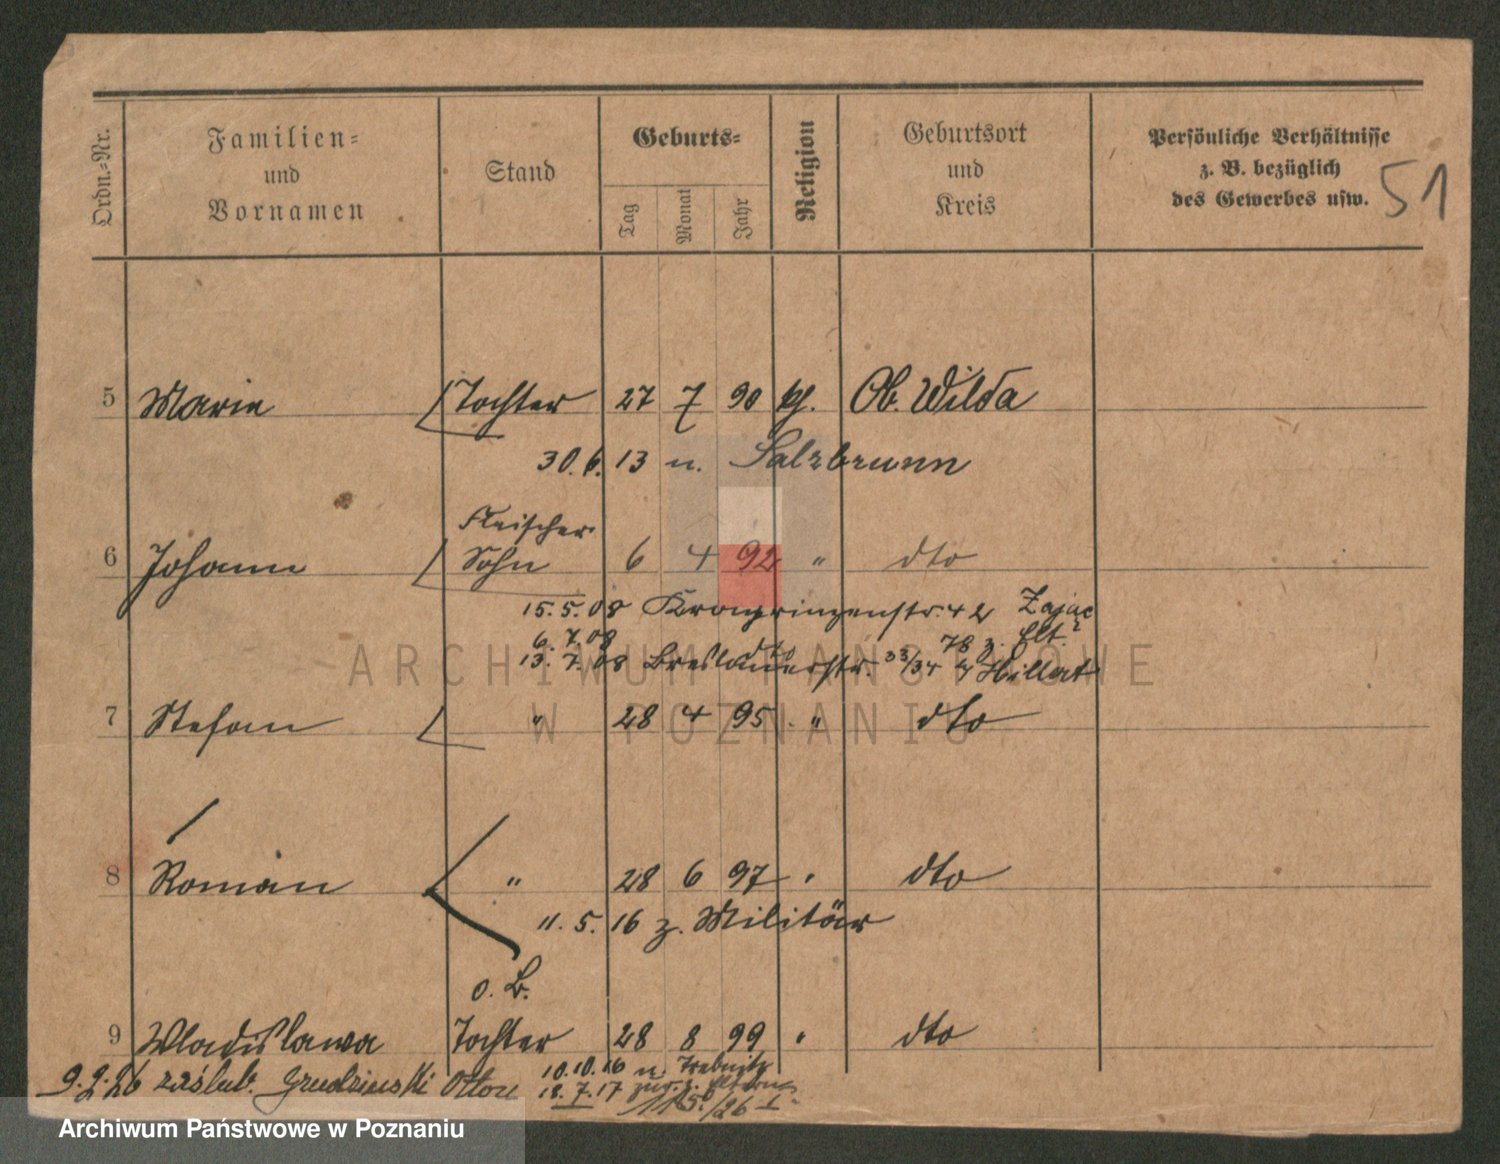 51
Ordn.=Nr.
Familien=
und
Vornamen
Stand
Geburts=
Tag
Monat
Jahr
Religion
Geburtsort
und
Kreis
Persönliche Verhältnisse
z. B. bezüglich
des Gewerbes usw.
5 Marie Tochter 27 7 90 kf. Ob. Wilda
30. 6. 13 n. Salzbrunn
Fleischer
6 Johann Sohn 6 4 92 " dto
15. 5. 08 Kronprinzenstr. 42 Zając
6. 7. 08 dto 78 z. Elt.
13. 7. 08 Breslauerstr. 33/34 Hillert
7 Stefan " 28 4 95 " dto
8 Roman " 28 6 97 " dto
11. 5. 16 z. Militär
o. B.
9 Wladislawa Tochter 28 8 99 " dto
9.2.26 zaślub. Grudzinski Otton
10.10.16 n. Trebnitz
18. 7. 17 zur. z. Eltern
ARCHIWUM PAŃSTWOWE
W POZNANIU
Archiwum Państwowe w Poznaniu